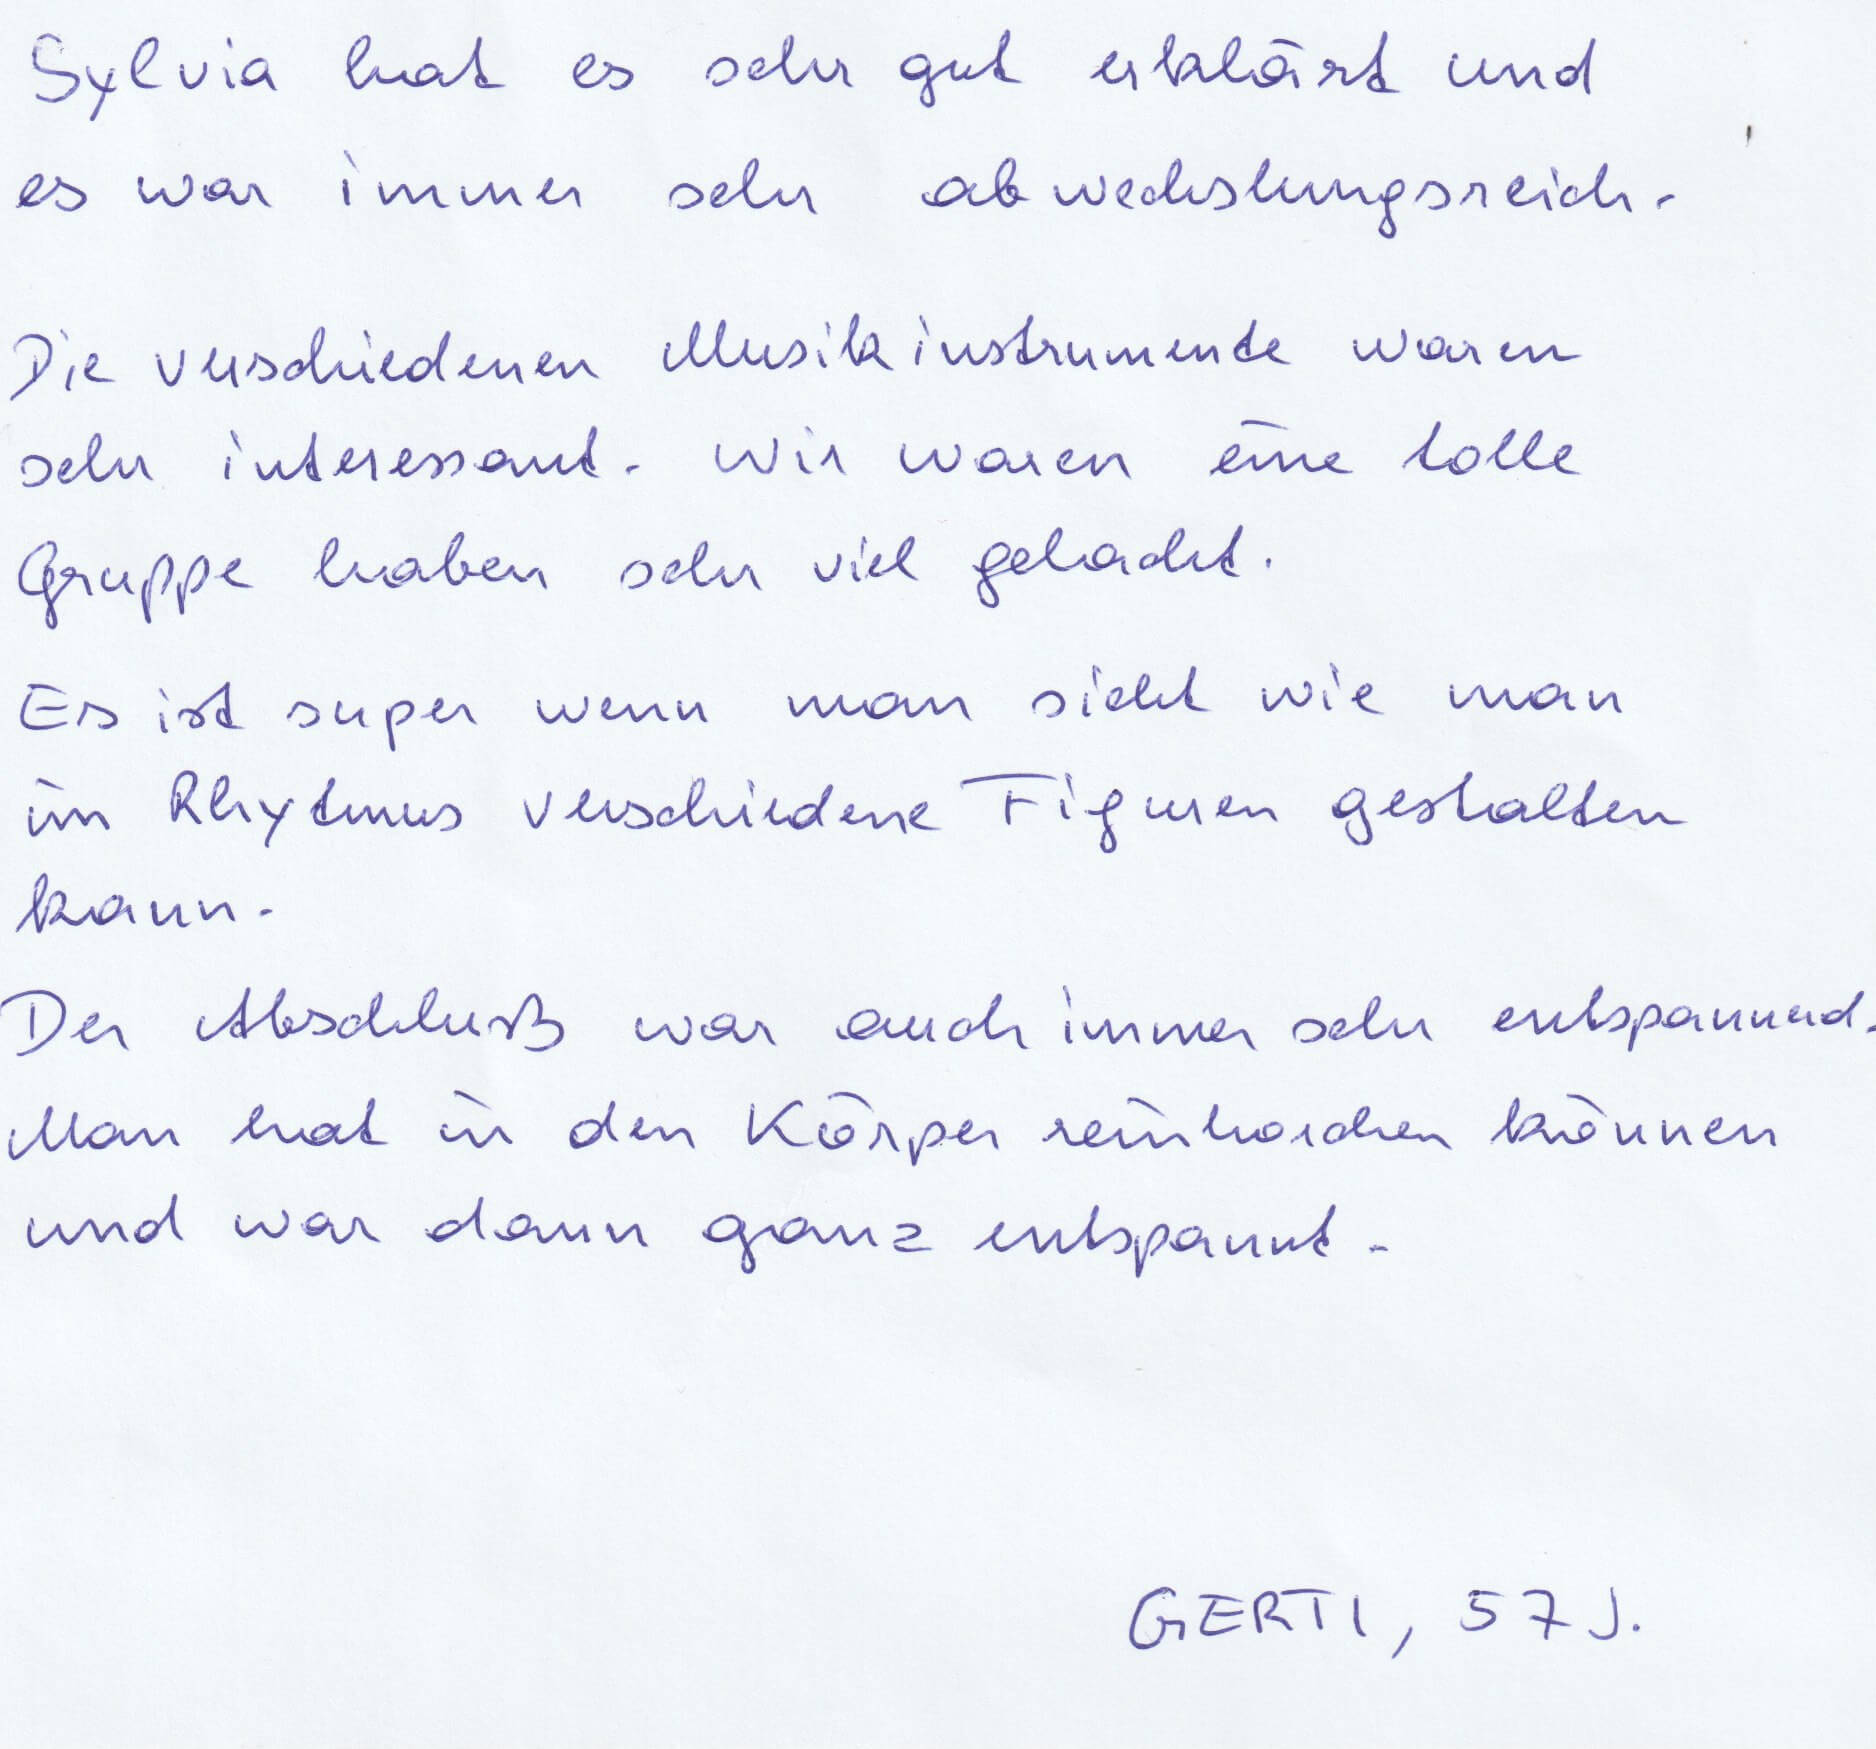 Sylvia hat es sehr gut erklärt und
es war immer sehr abwechslungsreich.
Die verschiedenen Musikinstrumente waren
sehr interessant. Wir waren eine tolle
Gruppe haben sehr viel gelacht.
Es ist super wenn man sieht wie man
im Rhytmus verschiedene Figuren gestalten
kann.
Der Abschluß war auch immer sehr entspannend.
Man hat in den Körper reinhorchen können
und war dann ganz entspannt.
GERTI, 57 J.